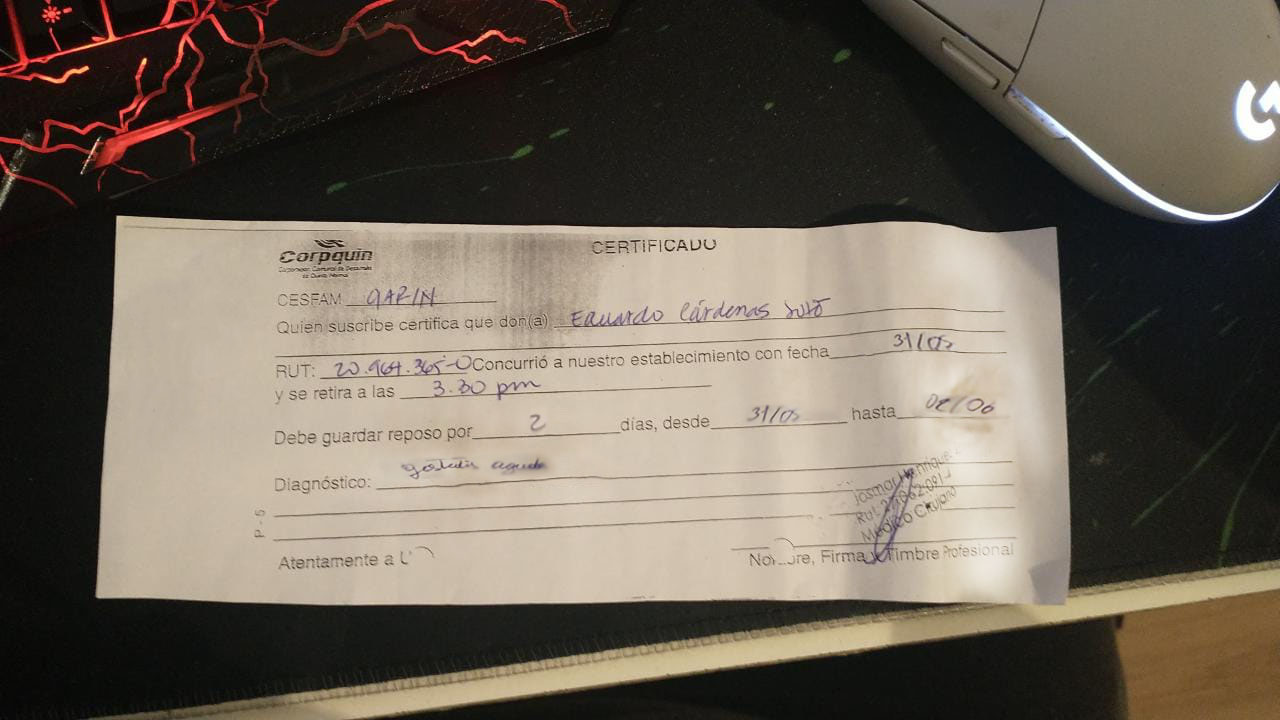 Corpquin
CERTIFICADO
Corporación Comunal de Desarrollo
de Quinta Normal
CESFAM GARIN
Quien suscribe certifica que don(a) Eduardo Cárdenas Soto
RUT: 20.964.365-0 Concurrió a nuestro establecimiento con fecha 31/05
y se retira a las 3.30 pm
Debe guardar reposo por 2 días, desde 31/05 hasta 02/06
Diagnóstico: aguda
P-5
Médico Cirujano
Atentamente a
Firma y Timbre Profesional